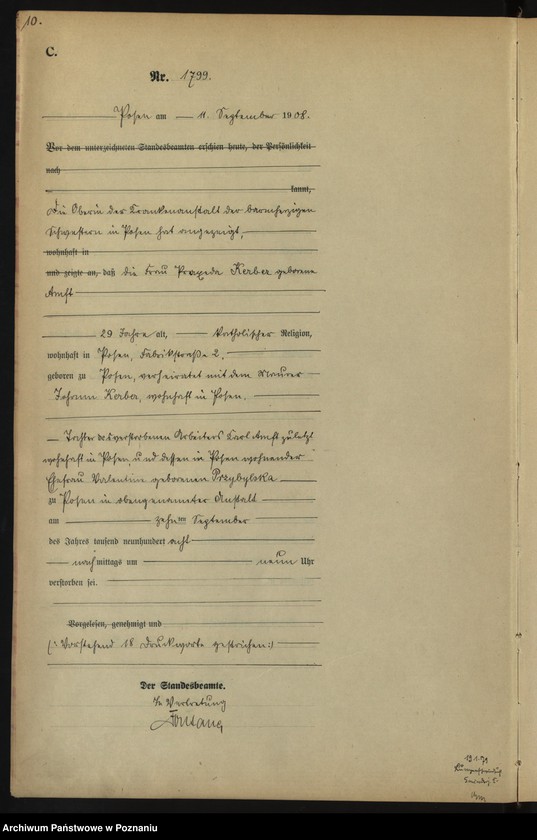 10.
C.
Nr. 1799.
Posen am 11. September 1908.
Vor dem unterzeichneten Standesbeamten erschien heute, der Persönlichkeit
nach
kannt,
Die Oberin der Krankenanstalt der barmherzigen
Schwestern in Posen hat angezeigt,
wohnhaft in
und zeigte an, daß die Frau Praxeda Kerber geborene
Amft
29 Jahre alt, katholischer Religion,
wohnhaft in Posen, Fabrikstraße 2,
geboren zu Posen, verheiratet mit dem Maurer
Johann Kerber, wohnhaft in Posen.
Tochter des verstorbenen Arbeiters Karl Amft zuletzt
wohnhaft in Posen, und dessen in Posen wohnender
Ehefrau Valentine geborenen Przybylska
zu Posen in obengenannter Anstalt
am zehnten September
des Jahres tausend neunhundert acht
nachmittags um neun Uhr
verstorben sei.
Vorgelesen, genehmigt und
(: Vorstehend 18 Druckworte gestrichen :)
Der Standesbeamte.
In Vertretung
Fontane
Archiwum Państwowe w Poznaniu